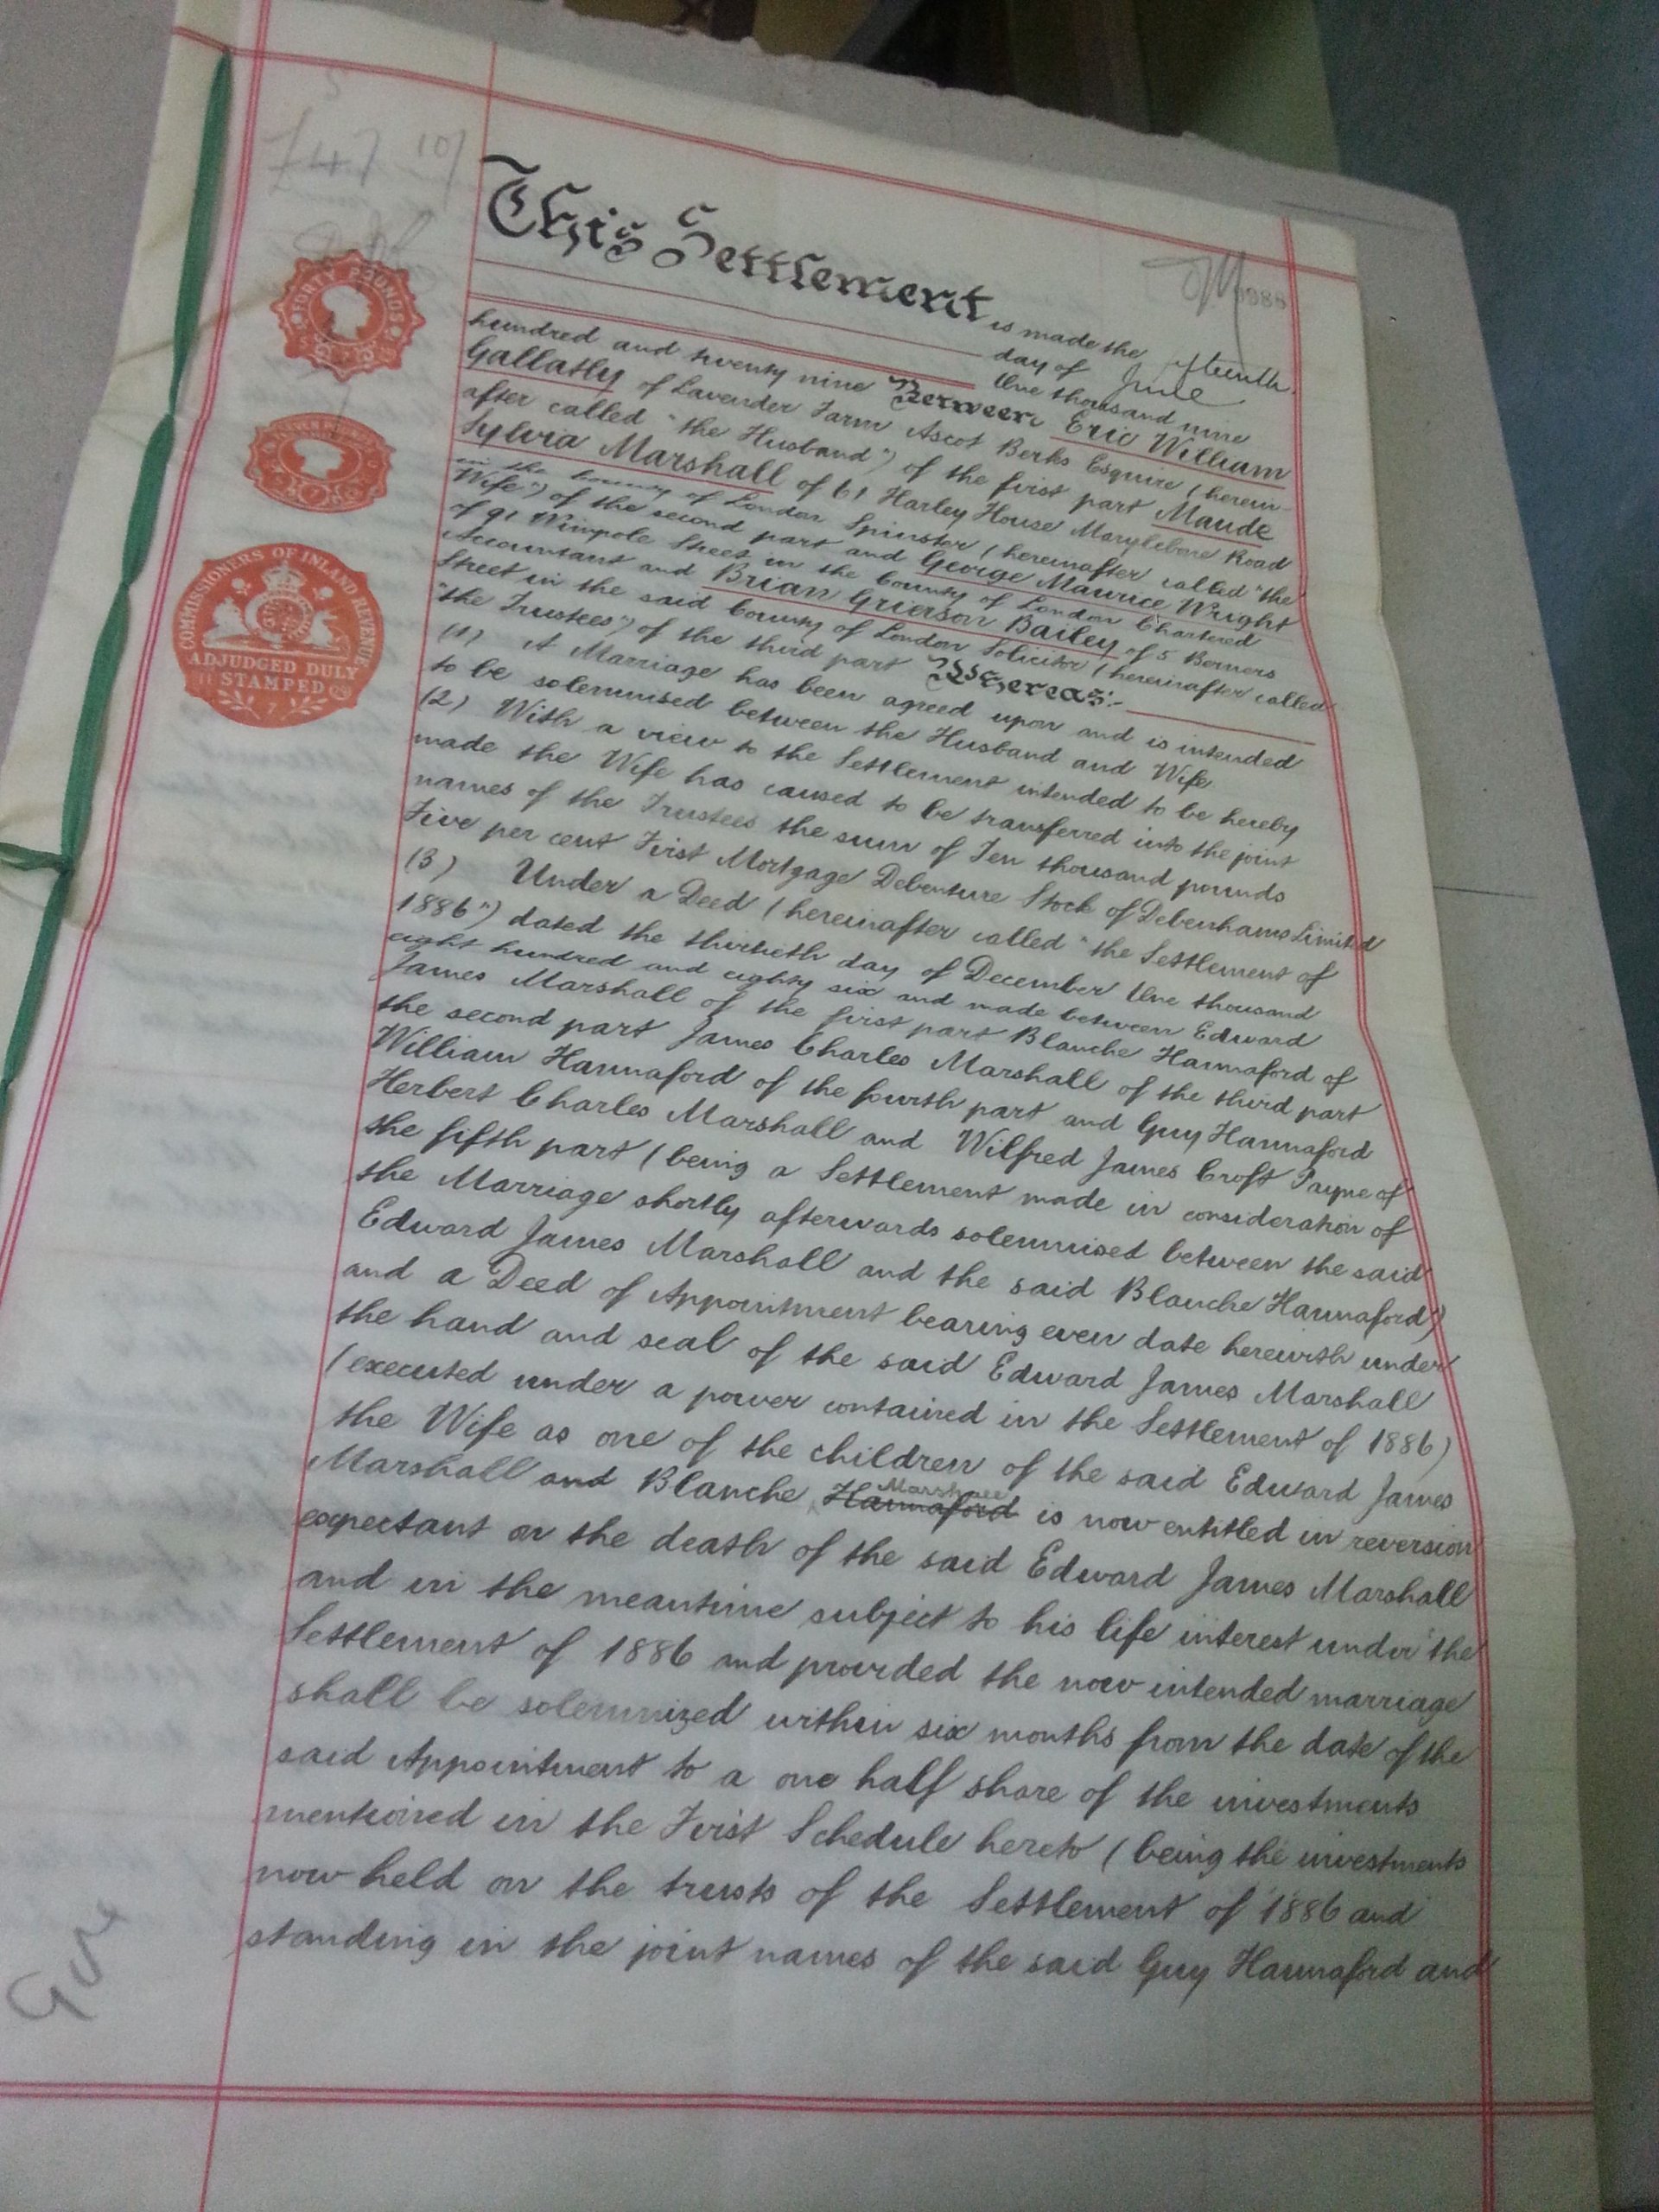 £47 10/
FORTY POUNDS
SEVEN POUNDS
COMMISSIONERS OF INLAND REVENUE
ADJUDGED DULY
STAMPED
This Settlement is made the fifteenth
day of June
One thousand nine
hundred and twenty nine Between Eric William
Gallatly of Lavender Farm Ascot Berks Esquire (herein-
after called "the Husband") of the first part Maude
Sylvia Marshall of 61 Harley House Marylebone Road
in the County of London Spinster (hereinafter called "the
Wife") of the second part and George Maurice Wright
of 91 Wimpole Street in the County of London Chartered
Accountant and Brian Grierson Bailey of 5 Berners
Street in the said County of London Solicitor (hereinafter called
"the Trustees") of the third part Whereas:-
(1) A Marriage has been agreed upon and is intended
to be solemnised between the Husband and Wife
(2) With a view to the Settlement intended to be hereby
made the Wife has caused to be transferred into the joint
names of the Trustees the sum of Ten thousand pounds
Five per cent First Mortgage Debenture Stock of Debenhams Limited
(3) Under a Deed (hereinafter called "the Settlement of
1886") dated the thirtieth day of December One thousand
eight hundred and eighty six and made between Edward
James Marshall of the first part Blanche Hannaford of
the second part James Charles Marshall of the third part
William Hannaford of the fourth part and Guy Hannaford
Herbert Charles Marshall and Wilfred James Croft Payne of
the fifth part (being a Settlement made in consideration of
the Marriage shortly afterwards solemnised between the said
Edward James Marshall and the said Blanche Hannaford)
and a Deed of Appointment bearing even date herewith under
the hand and seal of the said Edward James Marshall
(executed under a power contained in the Settlement of 1886)
the Wife as one of the children of the said Edward James
Marshall
Marshall and Blanche Hannaford is now entitled in reversion
expectant on the death of the said Edward James Marshall
and in the meantime subject to his life interest under the
Settlement of 1886 and provided the now intended marriage
shall be solemnized within six months from the date of the
said Appointment to a one half share of the investments
mentioned in the First Schedule hereto (being the investments
now held on the trusts of the Settlement of 1886 and
standing in the joint names of the said Guy Hannaford and